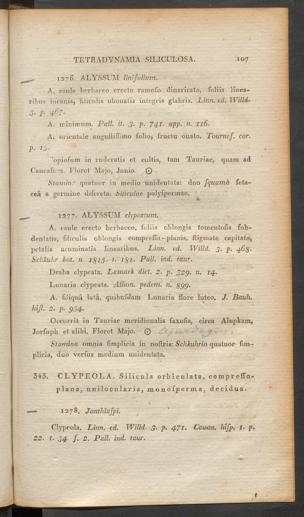 TETRADYNAMIA SILICULOSA. 107
1276. ALYSSUM linifolium.
A. caule herbaceo erecto ramoso divaricato, foliis linea-
ribus incanis, siliculis obovatis integris glabris. Linn. ed. Willd.
3. p. 467.
A. minimum. Pall. it. 3. p. 741. app. n. 116.
A. orientale angustissimo folio, fructu ovato. Tournef. cor.
p. 15.
Copiosum in ruderatis et cultis, tam Tauriae, quam ad
Caucasum. Floret Majo, Junio. ☉
Stamina quatuor in medio unidentata: duo squamâ seta-
ceâ a germine discreta. Siliculae polyspermae.
1277. ALYSSUM clypeatum.
A. caule erecto herbaceo, foliis oblongis tomentosis sub-
dentatis, siliculis oblongis compresso-planis, stigmate capitato,
petalis acuminatis linearibus. Linn. ed. Willd. 3. p. 468.
Schkuhr bot. n. 1815. t. 181. Pall. ind. taur.
Draba clypeata. Lamark dict. 2. p. 329. n. 14.
Lunaria clypeata. Allion. pedem. n. 899.
A. siliquâ latâ, quibusdam Lunaria flore luteo. J. Bauh.
hist. 2. p. 934.
Occurrit in Tauriae meridionalis saxosis, circa Alupkam,
Jorsuph et alibi, Floret Majo. ☉
Stamina omnia simplicia in nostris: Schkuhrio quatuor sim-
plicia, duo versus medium unidentata.
343. CLYPEOLA. Silicula orbiculata, compresso-
plana, unilocularis, monosperma, decidua.
1278. Jonthlaspi.
Clypeola. Linn. ed. Willd. 3. p. 471. Cavan. hisp. 1. p.
22. t. 34 f. 2. Pall. ind. taur.